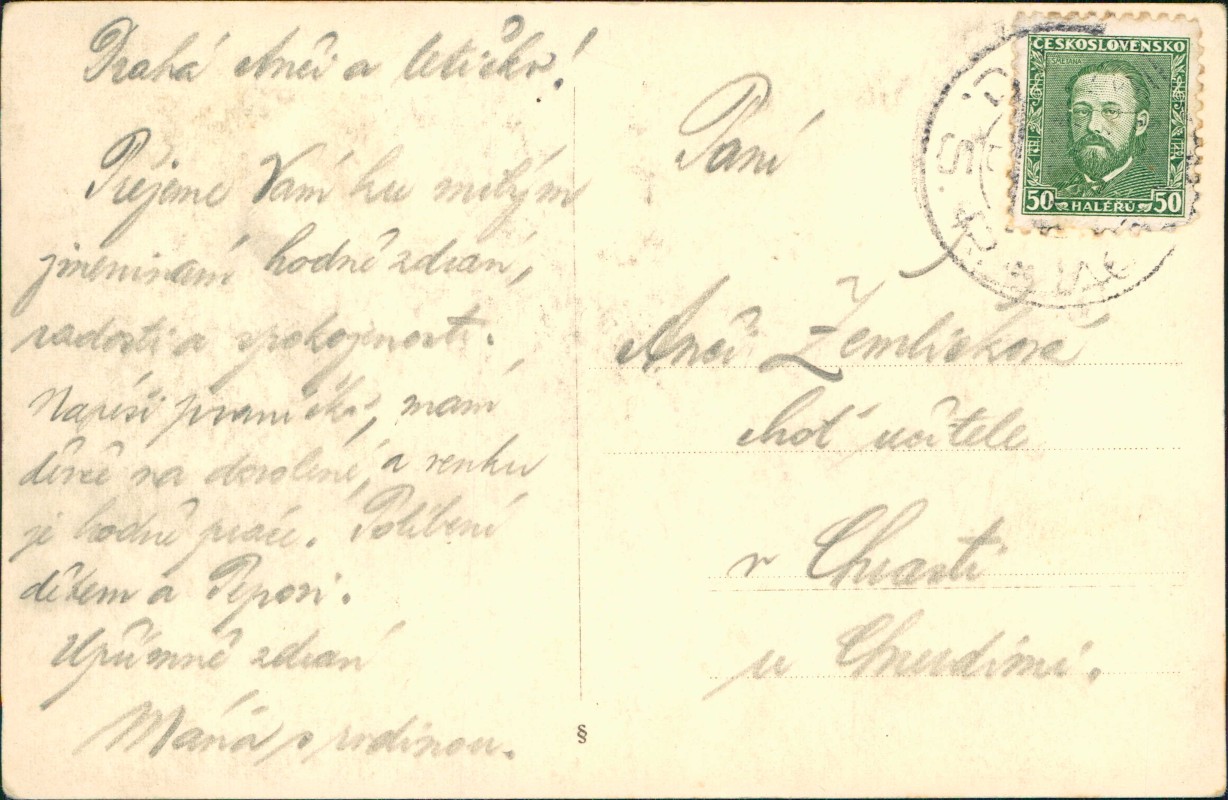 Drahá Anči a tetičko!
Přejeme Vám ku milým
jmeninám hodně zdraví,
radosti a spokojenosti.
Napíši psaníčko, mám
děvče na dovolené, a venku
je hodně práce. Políbení
dětem a Pepovi.
Upřímně zdraví
Máňa s rodinou.
Paní
Anči Zemličková
choť učitele
v Chrasti
u Chrudimi.
ČESKOSLOVENSKO
B. SMETANA
50 HALÉŘŮ 50
§